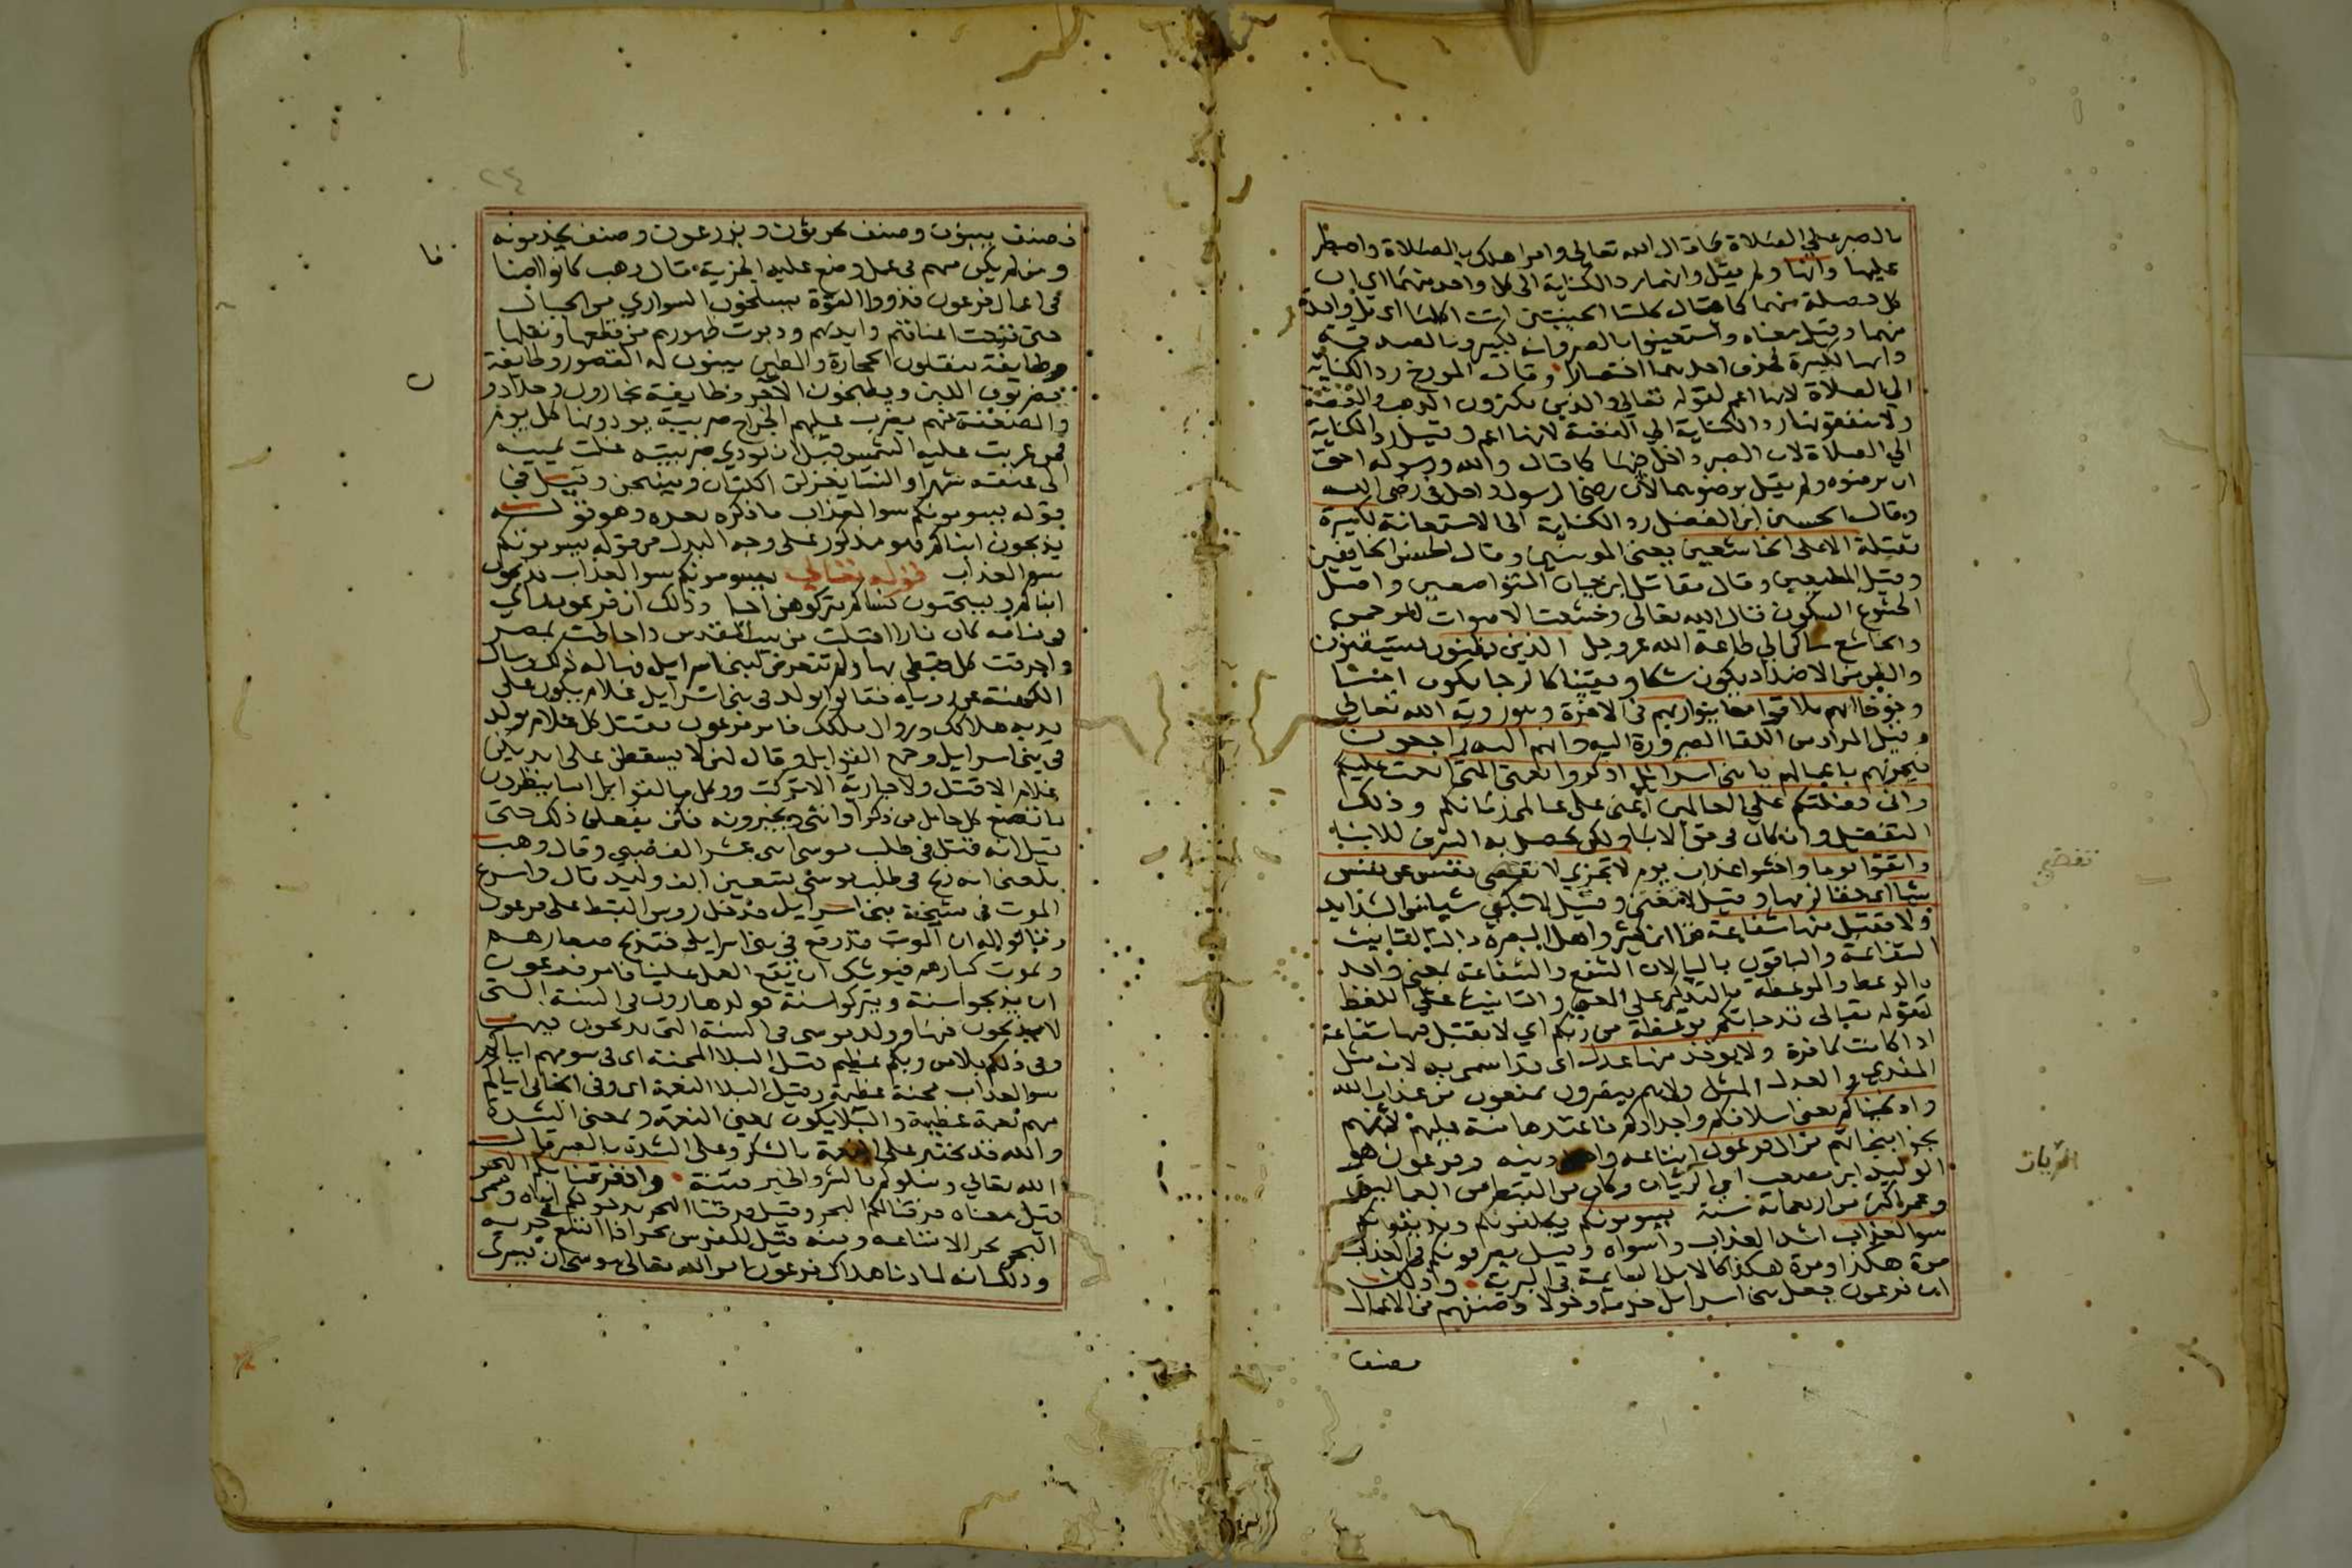 بالصبر على الصلاة كما قال الله تعالى وامر اهلك بالصلاة واصطبر
عليها وانها ولم يقل وانهما رد الكناية الى كل واحد منهما اي ان
كل خصلة منهما كما قال كلتا الجنتين اتت اكلها اي كل واحدة
منهما وقيل معناه واستعينوا بالصبر وانه لكبير وبالصلاة
وانها لكبيرة فحذف احدهما اختصارا وقال المورخ رد الكناية
الى الصلاة لانها اعم لقوله تعالى والذين يكنزون الذهب والفضة
ولا ينفقونها رد الكناية الى الفضة لانها اعم وقيل رد الكناية
الى الصلاة لان الصبر داخل فيها كما قال والله ورسوله احق
ان يرضوه ولم يقل يرضوهما لان رضى الرسول داخل في رضى الله
وقال الحسين ابن الفضل رد الكناية الى الاستعانة لكبيرة
ثقيلة الا على الخاشعين يعني المومنين وقال الحسن الخايفين
وقيل المطيعين وقال مقاتل ابن حيان المتواضعين واصل
الخشوع السكون قال الله تعالى وخشعت الاصوات للرحمن
والخاشع ساكن الى طاعة الله عز وجل الذين يظنون يستيقنون
والظن من الاضداد يكون شكا ويقينا كالرجا يكون امنا
وخوفا انهم ملاقوا معاينوا ربهم في الاخرة وهو روية الله تعالى
وقيل المراد من اللقا الصيرورة اليه وانهم اليه راجعون
فيجزيهم باعمالهم يا بني اسرائيل اذكروا نعمتي التي انعمت عليكم
واني فضلتكم على العالمين اي على عالمي زمانكم وذلك
التفضيل وان كان في حق الابا ولكن يحصل به الشرف للابنا
واتقوا يوما واخشوا عذاب يوم لا تجزي لا تقضي نفس عن نفس
شيا اي حقا لزمها وقيل لا تغني وقيل لا تكفي شيا من الشدايد
ولا تقبل منها شفاعة قرا ابن كثير واهل البصرة بالتا لتانيث
الشفاعة والباقون باليا لان الشفع والشفاعة بمعنى واحد
كالوعظ والموعظة فالتذكير على المعنى والتانيث على اللفظ
لقوله تعالى قد جاتكم موعظة من ربكم اي لا تقبل منها شفاعة
اذا كانت كافرة ولا يوخذ منها عدل اي فدا سمي به لانه مثل
المفدي والعدل المثل ولا هم ينصرون يمنعون من عذاب الله
واذ نجيناكم يعني اسلافكم واجدادكم فاعتدها منة عليهم لانهم
نجوا بنجاتهم من ال فرعون اتباعه واهل دينه وفرعون هو
الوليد ابن مصعب ابن الريان وكان من القبط من العماليق
وعمر اكثر من اربعماية سنة يسومونكم يكلفونكم ويذيقونكم
سو العذاب اشد العذاب واسواه وقيل يصرفونكم في العذاب
مرة هكذا ومرة هكذا كالابل السايمة في البرية وذلك
ان فرعون جعل بني اسرائيل خدما وخولا وصنفهم في الاعمال
فصنف
تقضي
الريان
فصنف يبنون وصنف يحرثون ويزرعون وصنف يخدمونه
ومن لم يكن منهم في عمل وضع عليه الجزية قال وهب كانوا اصنافا
في اعمال فرعون فذووا القوة يسلخون السواري من الجبال
حتى تقرحت اعناقهم وايديهم ودبرت ظهورهم من قطعها ونقلها
وطايفة ينقلون الحجارة والطين يبنون له القصور وطايفة
يضربون اللبن ويطبخون الاجر وطايفة نجارون وحدادون
والضعفة منهم يضرب عليهم الخراج ضريبة يودونها كل يوم
فمن غربت عليه الشمس قبل ان يودي ضريبته غلت يمينه
الى عنقه شهرا والنسا يغزلن الكتان وينسجن وقيل في
قوله يسومونكم سو العذاب ما ذكره بعده وهو قوله
يذبحون ابناكم فهو مذكور على وجه البدل من قوله يسومونكم
سو العذاب قوله تعالى يسومونكم سو العذاب يذبحون
ابناكم ويستحيون نساكم يتركوهن احيا وذلك ان فرعون راى
في منامه كان نارا اقبلت من بيت المقدس واحاطت بمصر
واحرقت كل قبطي بها ولم تتعرض لبني اسرايل فهاله ذلك وسال
الكهنة عن روياه فقالوا يولد في بني اسرايل غلام يكون على
يديه هلاكك وزوال ملكك فامر فرعون بقتل كل غلام يولد
في بني اسرايل وجمع القوابل وقال لهن لا يسقطن على ايديكن
غلام الا قتل ولا جارية الا تركت ووكل بالقوابل اناسا ينظرون
ما تضع كل حامل من ذكر او انثى ويخبرونه فكن يفعلن ذلك حتى
قيل انه قتل في طلب موسى اثنى عشر الف صبي وقال وهب
بلغني انه ذبح في طلب موسى تسعين الف وليد قال واسرع
الموت في مشيخة بني اسرايل فدخل روس القبط على فرعون
وقالوا له ان الموت قد وقع في بني اسرايل فتذبح صغارهم
ويموت كبارهم فيوشك ان يقع العمل علينا فامر فرعون
ان يذبحوا سنة ويتركوا سنة فولد هارون في السنة التي
لا يذبحون فيها وولد موسى في السنة التي يذبحون فيها
وفي ذلكم بلا من ربكم عظيم قيل البلا المحنة اي في سومهم اياكم
سو العذاب محنة عظيمة وقيل البلا النعمة اي وفي انجائي اياكم
منهم نعمة عظيمة والبلا يكون بمعنى النعمة وبمعنى الشدة
والله قد يختبر على النعمة بالشكر وعلى الشدة بالصبر قال
الله تعالى ونبلوكم بالشر والخير فتنة واذ فرقنا بكم البحر
قيل معناه فرقنا لكم البحر وقيل فرقنا البحر بدخولكم اياه وسمي
البحر بحرا لاتساعه ومنه قيل للفرس بحر اذا اتسع في جريه
وذلك انه لما دنا هلاك فرعون امر الله تعالى موسى ان يسري